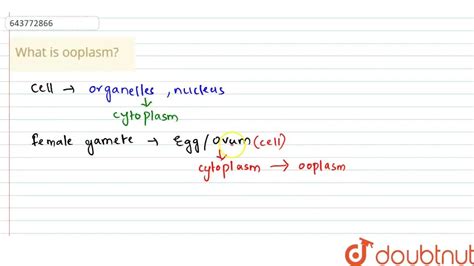 643772866
What is ooplasm?
cell → organelles , nucleus
↓
cytoplasm
female gamete → Egg/Ovum (cell)
↓
cytoplasm → ooplasm
doubtnut